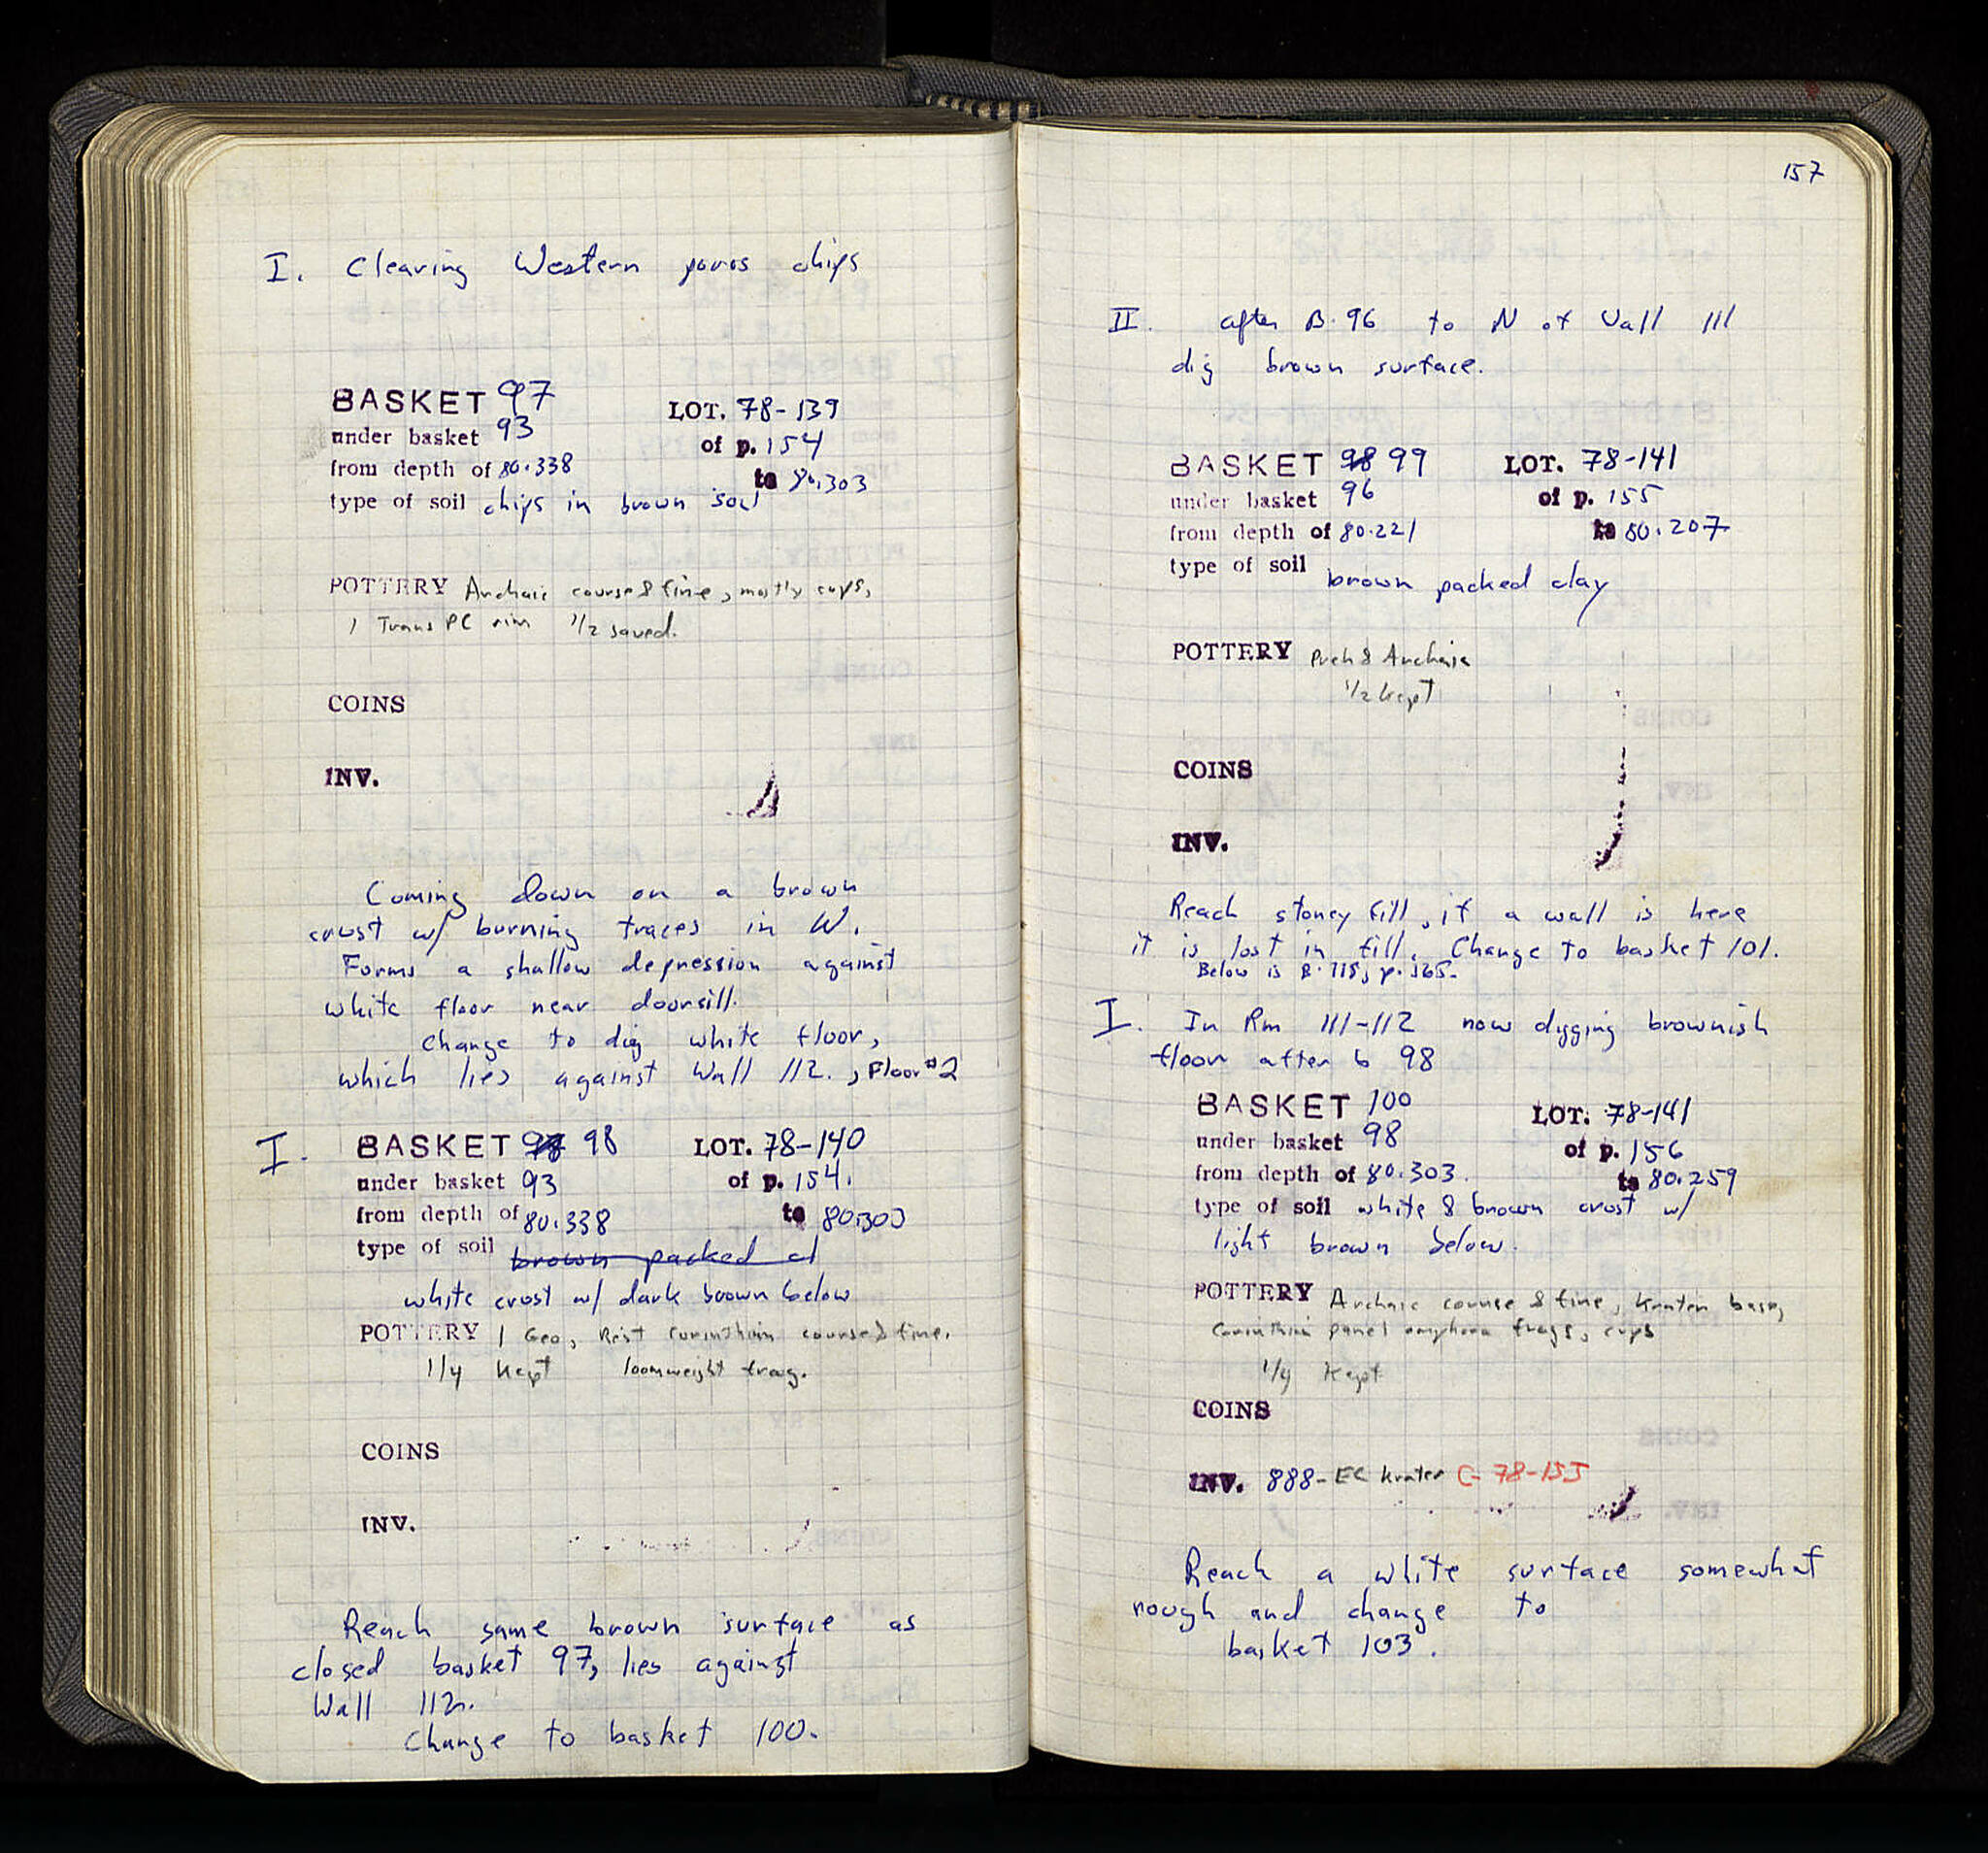 I. Clearing Western poros chips
BASKET 97 LOT. 78-139
under basket 93 of p. 154
from depth of 80.338 to 80.303
type of soil chips in brown soil
POTTERY Archaic course & fine, mostly cups,
1 Trans PC rim 1/2 saved.
COINS
INV.
Coming down on a brown
crust w/ burning traces in W.
Forms a shallow depression against
white floor near doorsill.
change to dig white floor,
which lies against Wall 112., Floor #2
I. BASKET 98 LOT. 78-140
under basket 93 of p. 154.
from depth of 80.338 to 80.303
type of soil brown packed cl
white crust w/ dark brown below
POTTERY 1 Geo, Rest Corinthain course & fine.
1/4 Kept loomweight frag.
COINS
INV.
Reach same brown surface as
closed basket 97, lies against
Wall 112.
change to basket 100.
157
II. after B. 96 to N of Wall 111
dig brown surface.
BASKET 98 99 LOT. 78-141
under basket 96 of p. 155
from depth of 80.221 to 80.207
type of soil brown packed clay
POTTERY & Archaic
1/2 kept
COINS
INV.
Reach stoney fill, if a wall is here
it is lost in fill. Change to basket 101.
Below is B. 115, p.
I. In Rm 111-112 now digging brownish
floor after b 98
BASKET 100 LOT. 78-141
under basket 98 of p. 156
from depth of 80.303. to 80.259
type of soil white & brown crust w/
light brown below.
POTTERY Archaic course & fine, Krater base,
Corinthian panel amphora frags, cups
1/4 Kept
COINS
INV. 888- EC krater C-78-155
Reach a white surface somewhat
rough and change to
basket 103.